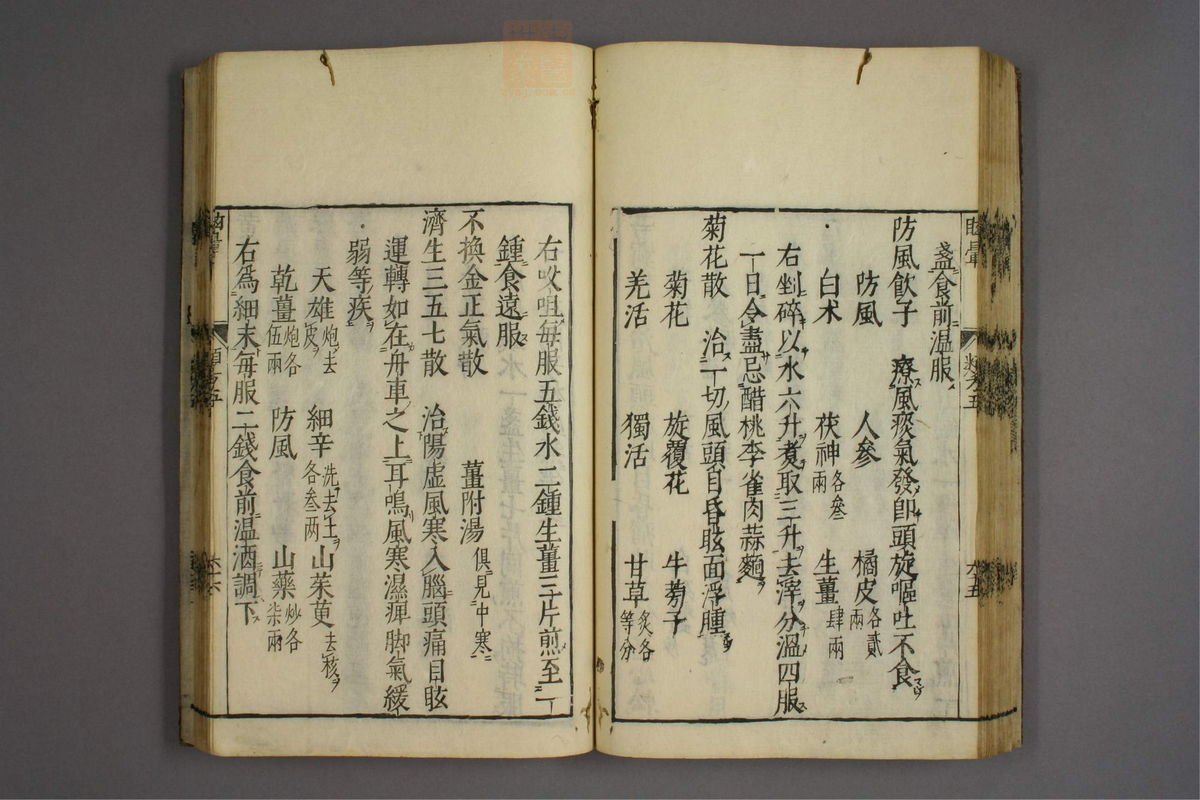 盞食前温服
防風飲子　療風痰氣發卽頭旋嘔吐不食
防風　人參　橘皮各貳兩
白朮　茯神各叁兩　生薑肆兩
右剉碎以水六升煑取三升去滓分溫四服
一日令盡忌醋桃李雀肉蒜麵
菊花散　治一切風頭目昏眩面浮腫
菊花　旋覆花　牛蒡子
羌活　獨活　甘草炙各等分
右㕮咀毎服五錢水二鍾生薑三片煎至一
鍾食遠服
不換金正氣散　薑附湯俱見中寒
濟生三五七散　治陽虚風寒入腦頭痛目眩
運轉如在舟車之上耳鳴風寒濕痺脚氣緩
弱等疾
天雄炮去皮　細辛洗去土各叁两　山茱萸去核
乾薑炮各伍兩　防風　山藥炒各柒兩
右爲細末毎服二錢食前温酒調下